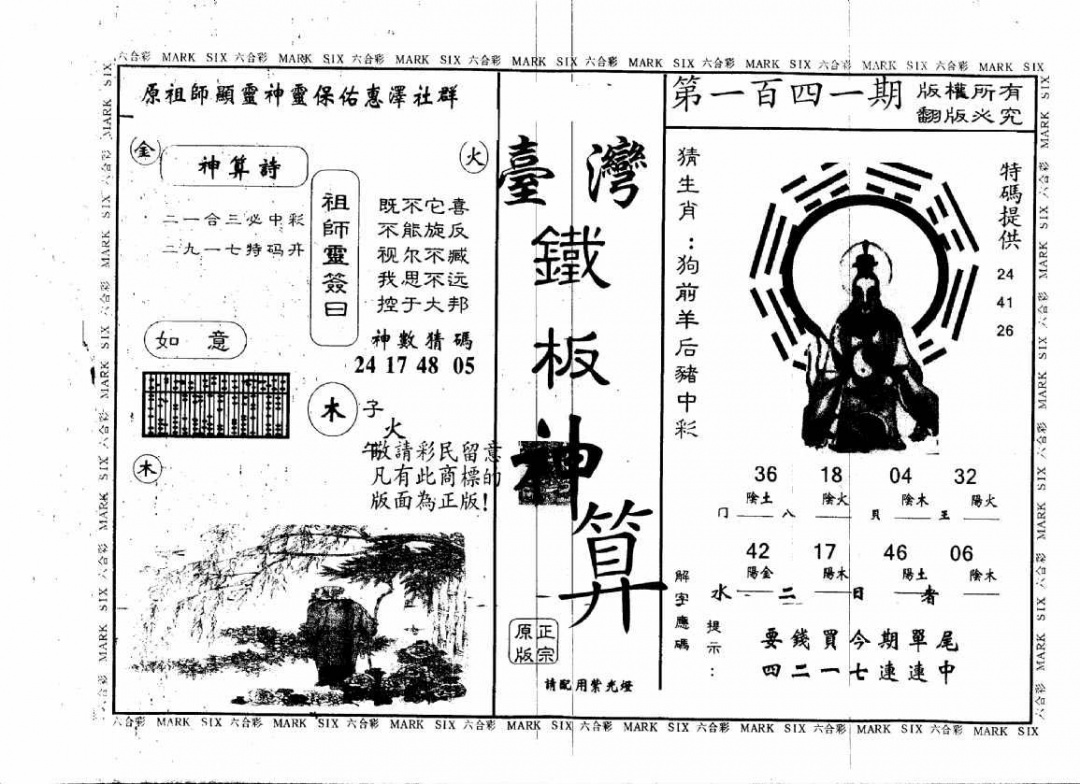 六合彩 MARK SIX 六合彩 MARK SIX 六合彩 MARK SIX 六合彩 MARK SIX 六合彩 MARK SIX 六合彩 MARK SIX 六合彩 MARK SIX 六合彩 MARK SIX
原祖師顯靈神靈保佑惠澤社群
金
神算詩
火
二一合三必中彩
二九一七特码开
祖師靈簽曰
既不它喜
不能旋反
视尔不臧
我思不远
控于大邦
神數猜碼
24 17 48 05
如意
木
子
火
午
木
敬請彩民留意
凡有此商標的
版面為正版!
臺灣
鐵
板
神
算
正宗
原版
請配用紫光燈
第一百四一期
版權所有
翻版必究
猜生肖:狗前羊后豬中彩
特碼提供
24
41
26
36 18 04 32
陰土 陰火 陰木 陽火
门 八 貝 王
42 17 46 06
陽金 陽木 陽土 陰木
水 二 日 者
解字應碼
提示:
要錢買今期單尾
四二一七連連中
六合彩 MARK SIX 六合彩 MARK SIX 六合彩 MARK SIX 六合彩 MARK SIX 六合彩 MARK SIX 六合彩 MARK SIX 六合彩 MARK SIX 六合彩 MARK SIX